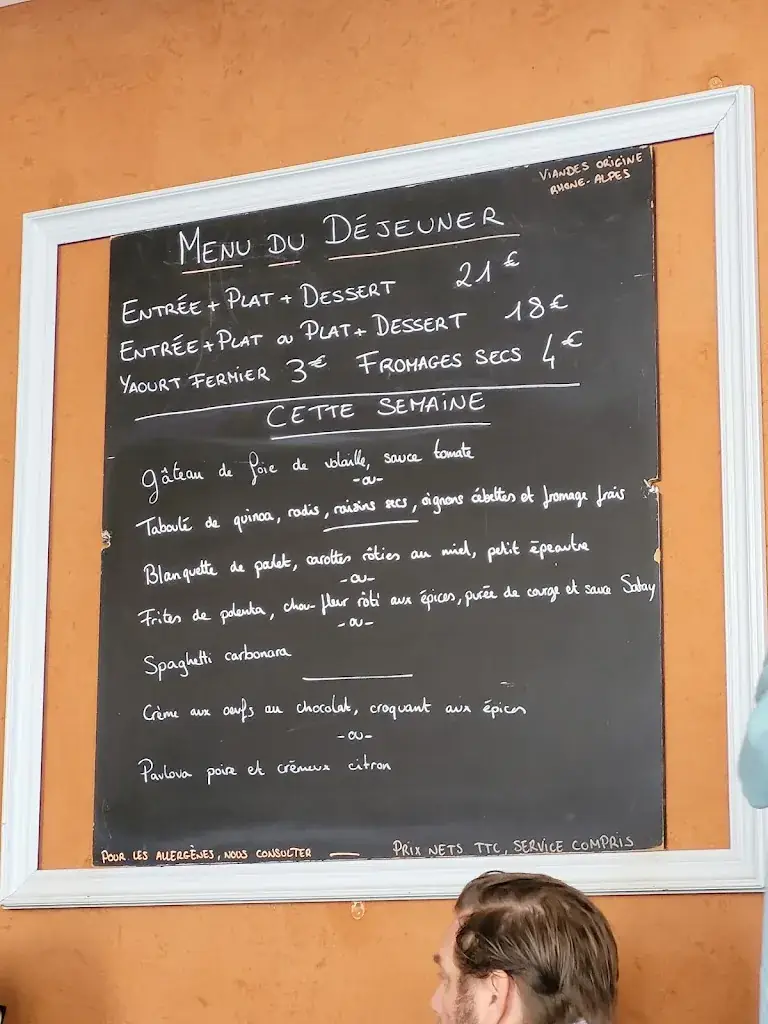 VIANDES ORIGINE
RHONE-ALPES
MENU DU DÉJEUNER
ENTRÉE + PLAT + DESSERT 21€
ENTRÉE + PLAT ou PLAT + DESSERT 18€
YAOURT FERMIER 3€ FROMAGES SECS 4€
CETTE SEMAINE
Gâteau de foie de volaille, sauce tomate
-ou-
Taboulé de quinoa, radis, raisins secs, oignons cébettes et fromage frais
Blanquette de poulet, carottes rôties au miel, petit épeautre
-ou-
Frites de polenta, chou-fleur rôti aux épices, purée de courge et sauce Satay
-ou-
Spaghetti carbonara
Crème aux oeufs au chocolat, croquant aux épices
-ou-
Pavlova poire et crémeux citron
POUR LES ALLERGÈNES, NOUS CONSULTER — PRIX NETS TTC, SERVICE COMPRIS